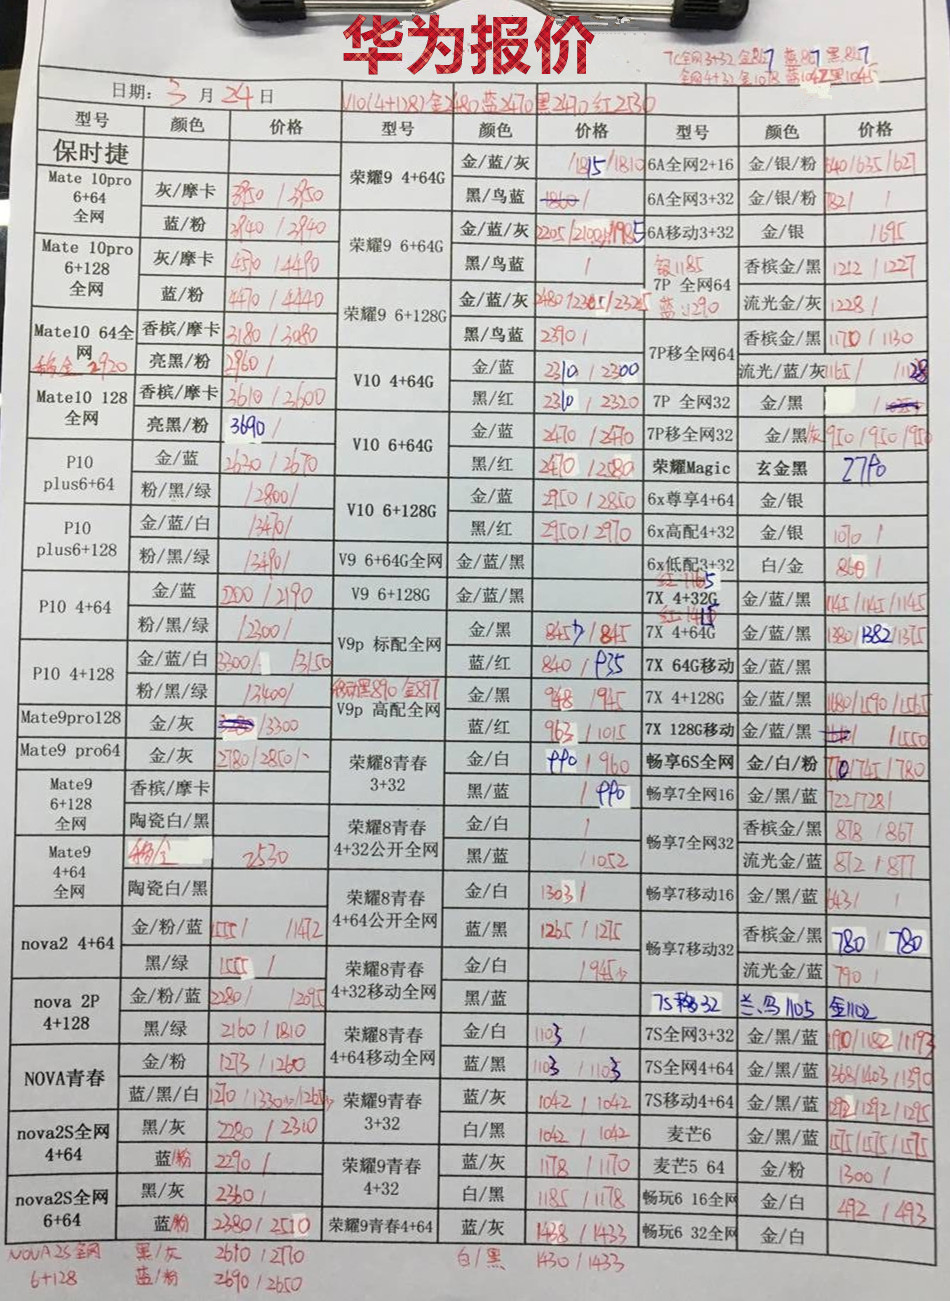 华为报价
7C全网3+32 金867 蓝867 黑857
全网4+32 金1078 蓝1042 黑1045
日期: 3 月 24 日
V10(4+128) 金2480 蓝2470 黑2470 红2530
型号 颜色 价格 型号 颜色 价格 型号 颜色 价格
保时捷
Mate 10pro 6+64 全网 灰/摩卡 3950 / 3950
蓝/粉 3940 / 3940
Mate 10pro 6+128 全网 灰/摩卡 4510 / 4490
蓝/粉 4470 / 4440
Mate10 64全网 香槟/摩卡 3180 / 3080
2920 亮黑/粉 2960 /
Mate10 128 全网 香槟/摩卡 3610 / 3600
亮黑/粉 3690 /
P10 plus6+64 金/蓝 2630 / 2670
粉/黑/绿 / 2800 /
P10 plus6+128 金/蓝/白 / 3470 /
粉/黑/绿 / 3490 /
P10 4+64 金/蓝 2200 / 2190
粉/黑/绿 / 2300 /
P10 4+128 金/蓝/白 3300 / / 3150
粉/黑/绿 / 3400 /
Mate9pro128 金/灰 / 3300
Mate9 pro64 金/灰 2780 / 2850 /
Mate9 6+128 全网 香槟/摩卡
陶瓷白/黑
Mate9 4+64 全网 2530
陶瓷白/黑
nova2 4+64 金/粉/蓝 1555 / / 1472
黑/绿 1555 /
nova 2P 4+128 金/粉/蓝 2280 / / 2095
黑/绿 2160 / 1810
NOVA青春 金/粉 1273 / 1260
蓝/黑/白 1270 / 1330
nova2S全网 4+64 黑/灰 2280 / 2310
蓝/粉 2290 /
nova2S全网 6+64 黑/灰 2360 /
蓝/粉 2380 / 2510
NOVA2S全网 6+128 黑/灰 2670 / 2770
蓝/粉 2690 / 2650
荣耀9 4+64G 金/蓝/灰 / 1815 / 1810
黑/鸟蓝 1860 /
荣耀9 6+64G 金/蓝/灰 2205 / 2100 / 1985
黑/鸟蓝 /
荣耀9 6+128G 金/蓝/灰 2480 / 2325
黑/鸟蓝 2390 /
V10 4+64G 金/蓝 2310 / 2300
黑/红 2310 / 2320
V10 6+64G 金/蓝 2470 / 2470
黑/红 2470 / 2580
V10 6+128G 金/蓝 2950 / 2850
黑/红 2950 / 2970
V9 6+64G全网 金/蓝/黑
V9 6+128G 金/蓝/黑
V9p 标配全网 金/黑 845 / 845
蓝/红 840 / 935
黑890 金897
V9p 高配全网 金/黑 948 / 945
蓝/红 963 / 1015
荣耀8青春 3+32 金/白 990 / 960
黑/蓝 / 990
荣耀8青春 4+32公开全网 金/白 /
黑/蓝 / 1052
荣耀8青春 4+64公开全网 金/白 1303 /
蓝/黑 1265 / 1275
荣耀8青春 4+32移动全网 金/白 / 945
黑/蓝
荣耀8青春 4+64移动全网 金/白 1103 /
蓝/黑 1103 / 1103
荣耀9青春 3+32 蓝/灰 1042 / 1042
白/黑 1042 / 1042
荣耀9青春 4+32 蓝/灰 1178 / 1170
白/黑 1185 / 1178
荣耀9青春4+64 蓝/灰 1438 / 1433
白/黑 1430 / 1433
6A全网2+16 金/银/粉 640 / 635 / 627
6A全网3+32 金/银/粉 821 /
6A移动3+32 金/银 / 695
银1185
7P 全网64 香槟金/黑 1212 / 1227
蓝1290 流光金/灰 1228 /
7P移全网64 香槟金/黑 1170 / 1130
流光/蓝/灰 1165 / 1128
7P 全网32 金/黑 /
7P移全网32 金/黑/灰 950 / 950 / 950
荣耀Magic 玄金黑 2790
6x尊享4+64 金/银
6x高配4+32 金/银 1070 /
6x低配3+32 白/金 860 /
红 1165
7X 4+32G 金/蓝/黑 1145 / 1145 / 1145
7X 4+64G 金/蓝/黑 1380 / 1382 / 1375
7X 64G移动 金/蓝/黑
7X 4+128G 金/蓝/黑 1680 / 1590 / 1565
7X 128G移动 金/蓝/黑 / 1550
畅享6S全网 金/白/粉 770 / 745 / 780
畅享7全网16 金/黑/蓝 722 / 728 /
畅享7全网32 香槟金/黑 878 / 867
流光金/蓝 872 / 877
畅享7移动16 金/黑/蓝 643 / /
畅享7移动32 香槟金/黑 780 / 780
流光金/蓝 790 /
7S移32 兰、乌1105 金1102
7S全网3+32 金/黑/蓝 1190 / 1182 / 1193
7S全网4+64 金/黑/蓝 1368 / 1403 / 1390
7S移动4+64 金/黑/蓝 1292 / 1292 / 1295
麦芒6 金/黑/蓝 1575 / 1575 / 1575
麦芒5 64 金/粉 1300 /
畅玩6 16全网 金/白 492 / 493
畅玩6 32全网 金/白